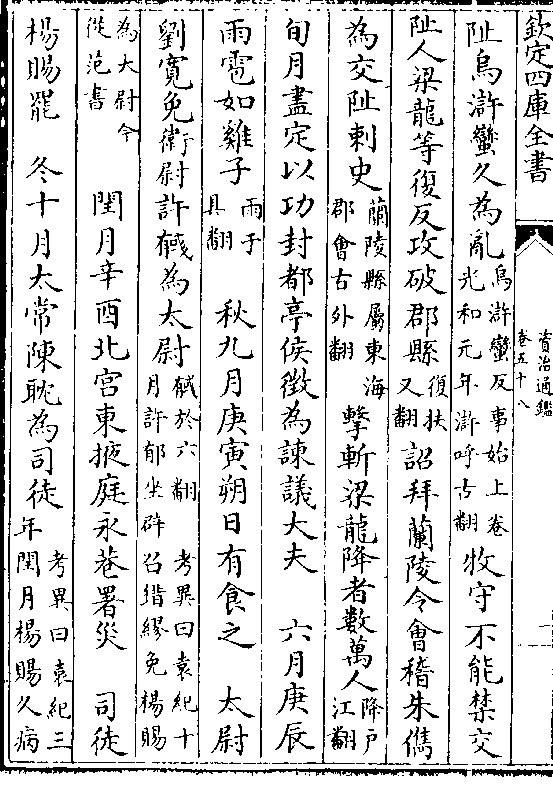 欽定四庫全書
資治通鑑
卷五十八
阯烏滸蠻久為亂烏滸蠻反事始上卷光和元年滸呼古翻牧守不能禁交
阯人梁龍等復反攻破郡縣復扶又翻詔拜蘭陵令會稽朱儁
為交阯刺史蘭陵縣屬東海郡會古外翻擊斬梁龍降者數萬人降戶江翻
旬月盡定以功封都亭侯徵為諫議大夫 六月庚辰
雨雹如雞子雨于具翻 秋九月庚寅朔日有食之 太尉
劉寬免衛尉許馘為太尉馘於六翻考異曰袁紀十月許郁坐辟召錯繆免楊賜
為太尉今從范書 閏月辛酉北宮東掖庭永巷署災 司徒
楊賜罷 冬十月太常陳耽為司徒考異曰袁紀三年閏月楊賜久病